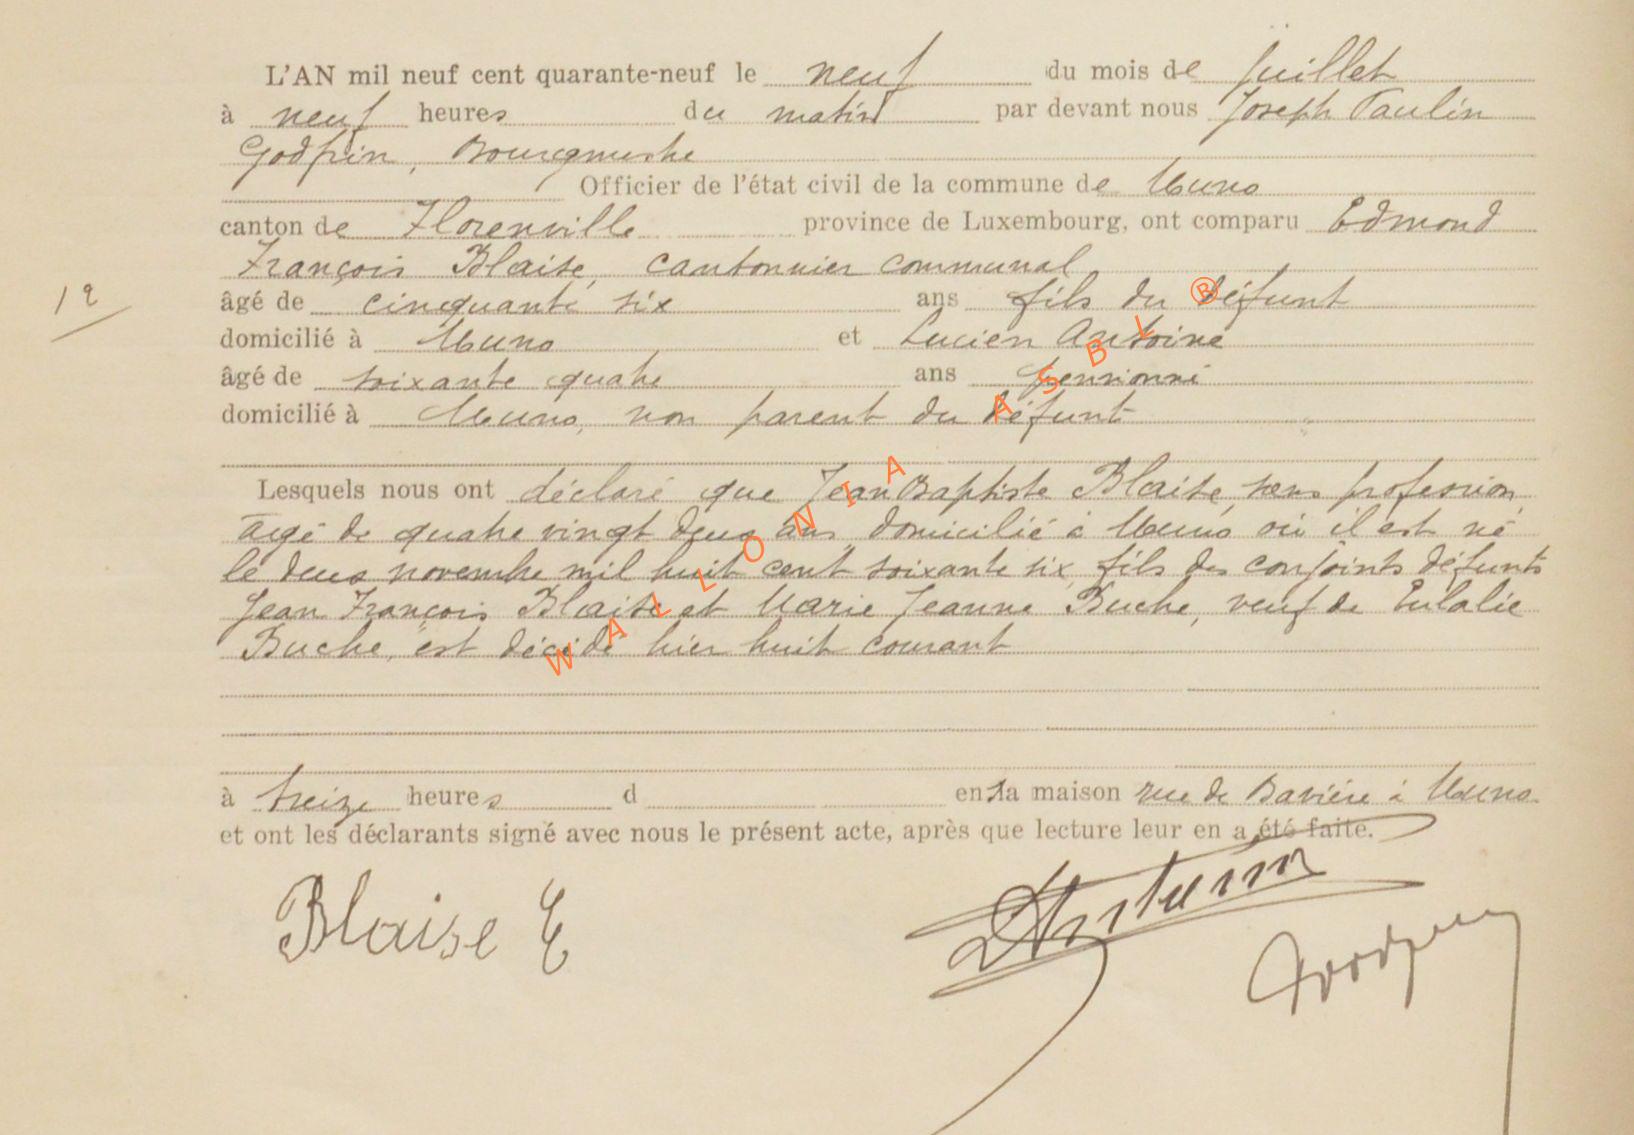 L'AN mil neuf cent quarante-neuf le neuf du mois de juillet
à neuf heures du matin par devant nous Joseph Paulin
Godfrin, Bourgmestre
Officier de l'état civil de la commune de Muno
canton de Florenville province de Luxembourg, ont comparu Edmond
François Blaise, cantonnier communal
âgé de cinquante six ans fils du défunt
12
domicilié à Muno et Lucien Antoine
âgé de soixante quatre ans pensionné
domicilié à Muno, non parent du défunt
Lesquels nous ont déclaré que Jean Baptiste Blaise, sans profession,
âgé de quatre vingt deux ans domicilié à Muno où il est né
le deux novembre mil huit cent soixante six, fils des conjoints défunts
Jean François Blaise et Marie Jeanne Buche, veuf de Eulalie
Buche, est décédé hier huit courant
à treize heures d en sa maison rue de Bavière à Muno
et ont les déclarants signé avec nous le présent acte, après que lecture leur en a été faite.
Blaise E
WALLONIA ASBL ®